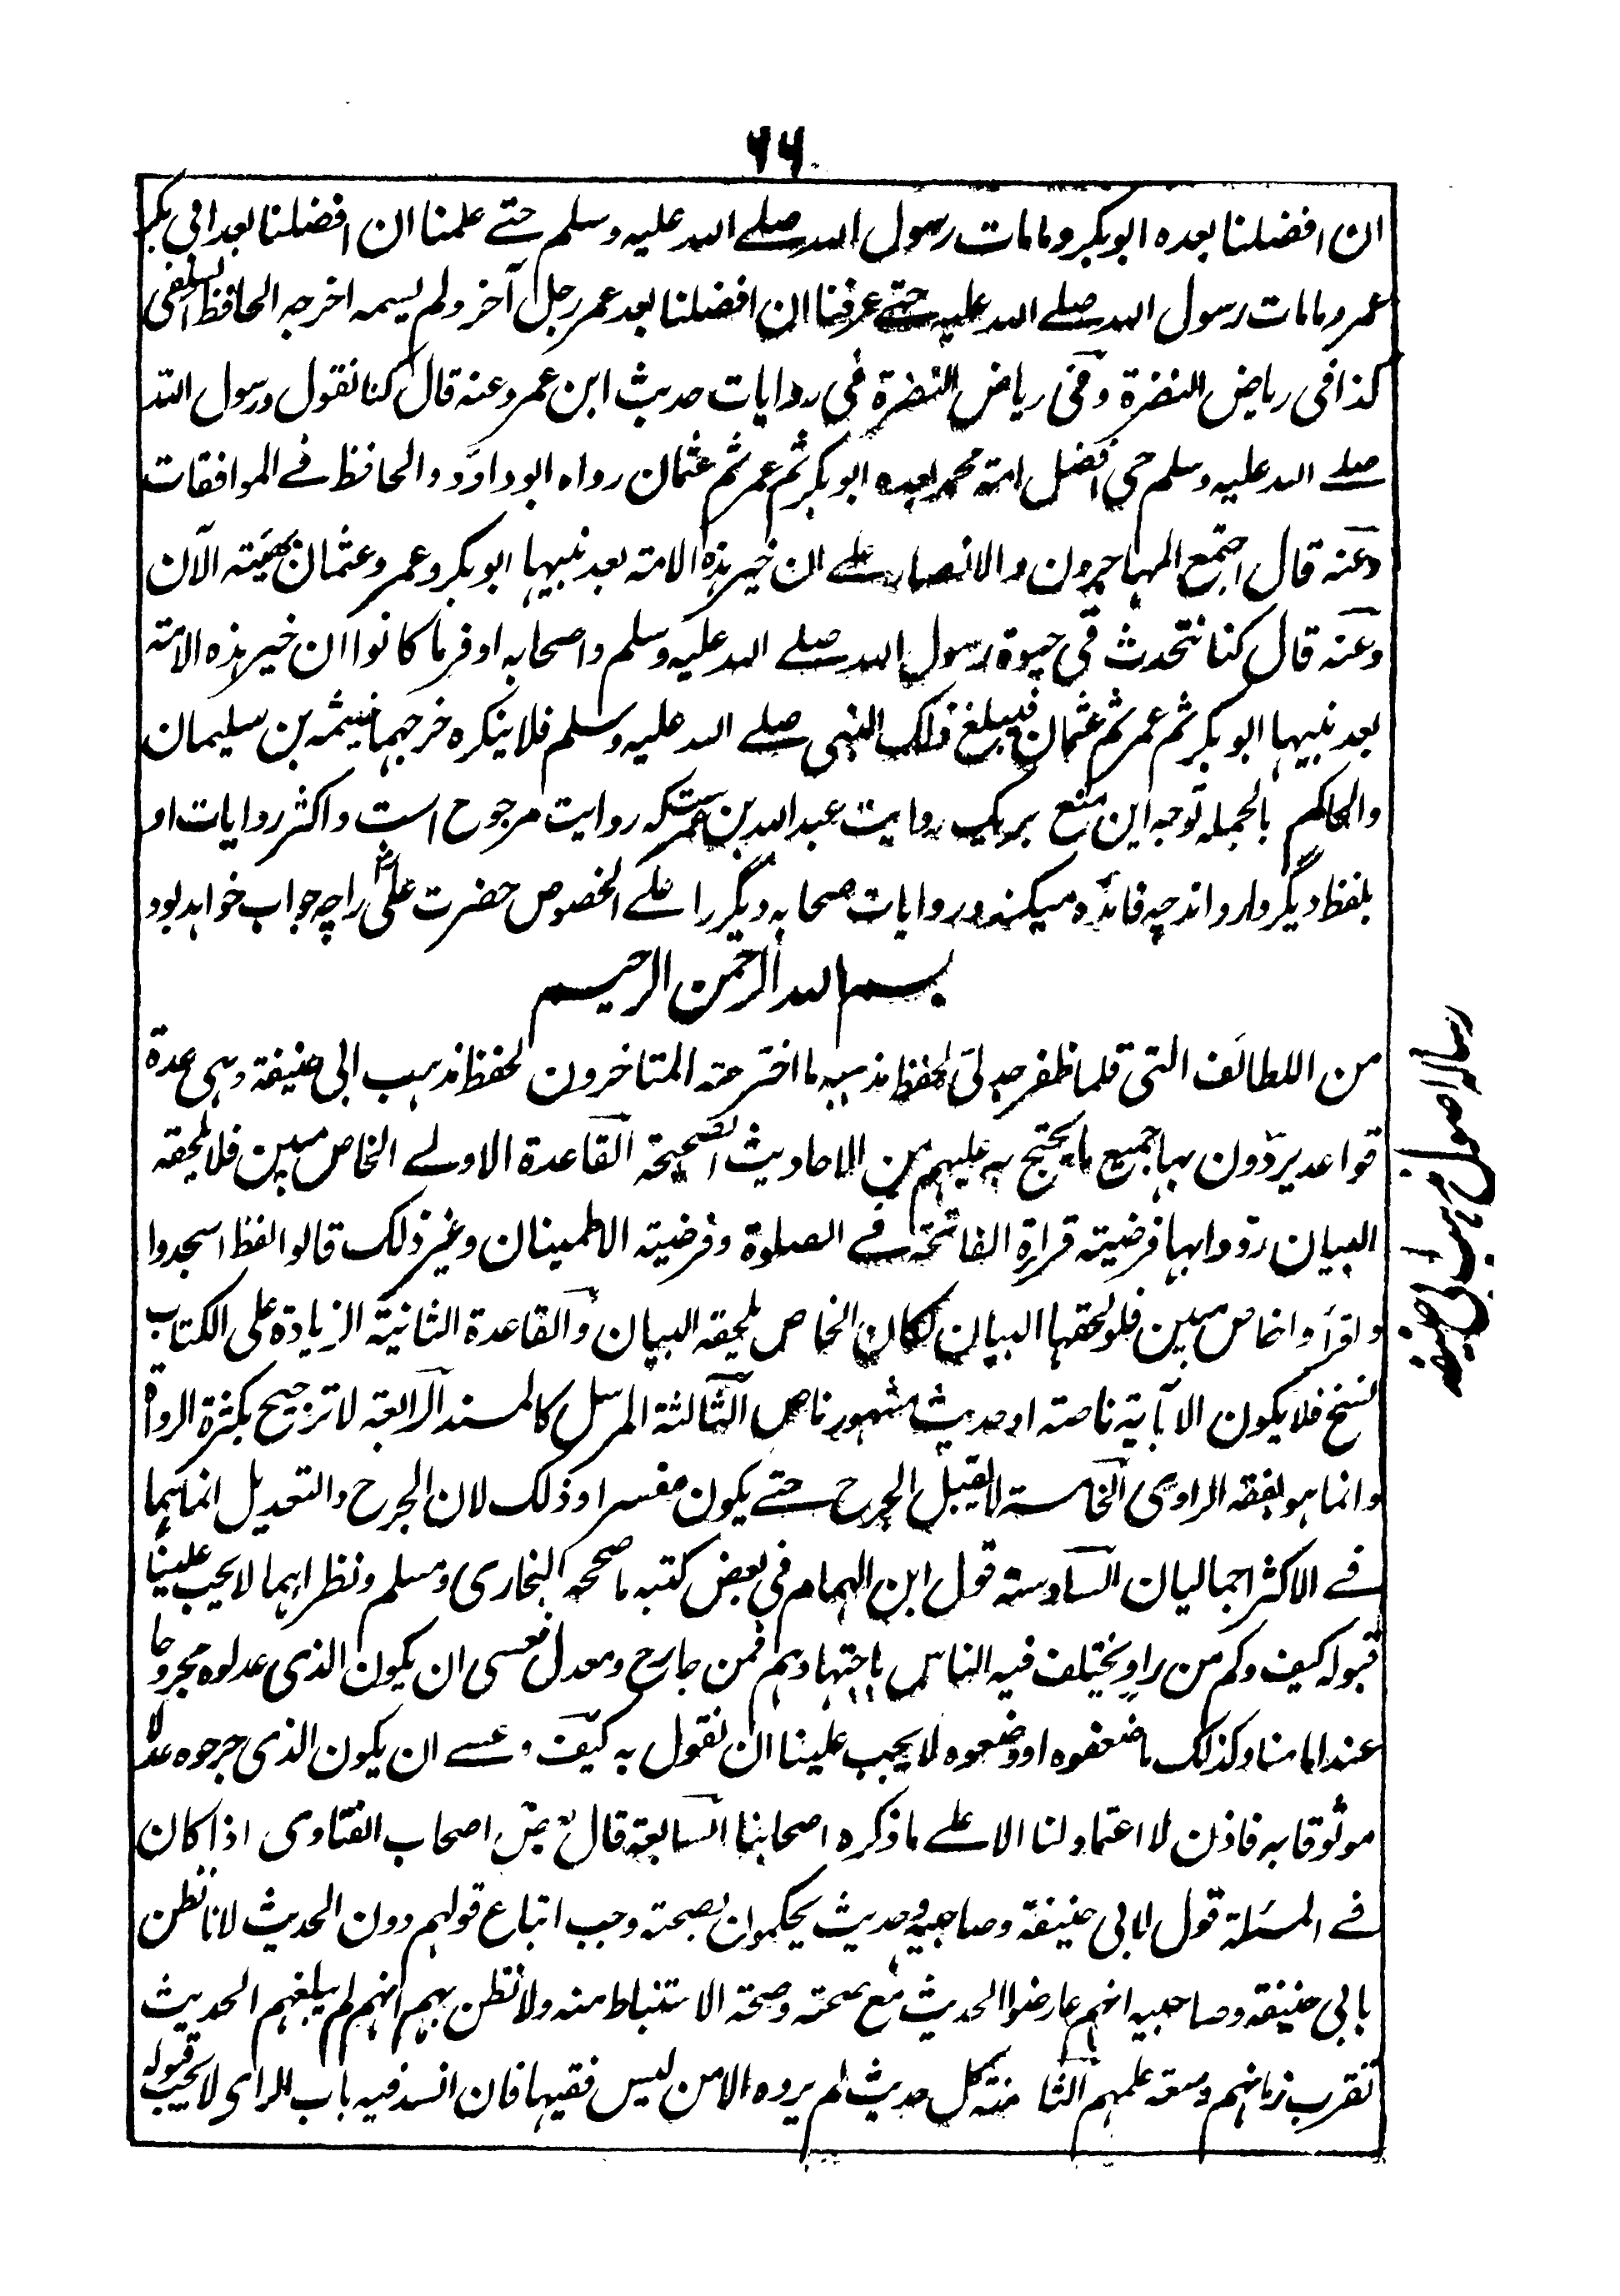 ۶۶
ان افضلنا بعده ابوبكر وما مات رسول الله صلے الله عليه وسلم حتے علمنا ان افضلنا بعد ابی بكر
عمر وما مات رسول الله صلے الله عليه حتے عرفنا ان افضلنا بعد عمر رجل آخر ولم يسمه اخرجه الحافظ السلفی
كذا فی رياض النضرة وفی رياض النضرة فی روايات حديث ابن عمر وعنه قال كنا نقول ورسول الله
صلے الله عليه وسلم حی افضل امة محمد بعده ابوبكر ثم عمر ثم عثمان رواه ابوداؤد والحافظ فے الموافقات
وعنه قال اجتمع المهاجرون والانصار علے ان خير هذه الامة بعد نبيها ابوبكر وعمر وعثمان بهيئته الآن
وعنه قال كنا نتحدث فی حيوة رسول الله صلے الله عليه وسلم واصحابه اوفر ما كانوا ان خير هذه الامة
بعد نبيها ابوبكر ثم عمر ثم عثمان فيبلغ ذلك النبی صلے الله عليه وسلم فلا ينكره خرجهما خيثمه بن سليمان
والحاكم بالجمله توجه اين منع بريك روايت عبد الله بن عمرست كه روايت مرجوح است واكثر روايات او
بلفظ ديگر وارد اند چه فائده ميكند و روايات صحابه ديگر را علے الخصوص حضرت علیؓ را چه جواب خواهد بود
بسم الله الرحمن الرحيم
من اللطائف التی قلما ظفر جدلی لحفظ مذهبه ما اخترعته المتاخرون لحفظ مذهب ابی حنيفة وهی عدة
قواعد يردّون بها جميع ما يحتج به عليهم من الاحاديث الصحيحة القاعدة الاولے الخاص مبين فلا يلحقه
البيان ردّوا بها فرضيته قراءة الفاتحة فے الصلوة وفرضيته الاطمينان وغير ذلك قالوا لفظ اسجدوا
واقرأوا خاص مبين فلو لحقها البيان لكان الخاص يلحقه البيان والقاعدة الثانية الزيادة على الكتاب
نسخ فلا يكون الا بآية ناصته او حديث مشهور ناص الثالثة المرسل كالمسند الرابعة لا ترجيح بكثرة الرواة
وانما هو بفقه الراوی الخامسة لا يقبل الجرح حتے يكون مفسرا وذلك لان الجرح والتعديل انما هما
فے الاكثر اجماليان السادسته قول ابن الهمام فی بعض كتبه ما صححه البخاری ومسلم ونظراهما لا يجب علينا
قبوله كيف وكم من راو يختلف فيه الناس باجتهادهم فمن جارح ومعدل فعسى ان يكون الذی عدلوه مجروحا
عند امامنا وكذلك ما ضعفوه او وضعوه لا يجب علينا ان نقول به كيف وعسے ان يكون الذی جرحوه عدلا
موثوقا به فاذن لا اعتماد لنا الا علے ما ذكره اصحابنا السابعة قال بعض اصحاب الفتاوی اذا كان
فے المسئلة قول لابی حنيفة وصاحبيه وحديث يحكموان بصحته وجب اتباع قولهم دون الحديث لانا نظن
بابی حنيفة وصاحبيه انهم عارضوا الحديث مع صحته وصحة الاستنباط منه ولا نظن بهم انهم لم يبلغهم الحديث
تقرب زمانهم وسعة علمهم الثامنة كل حديث لم يروه الا من ليس فقيها فان انسد فيه باب الرای لا يجب قبوله
رساله اصول مذهب ابی حنيفه